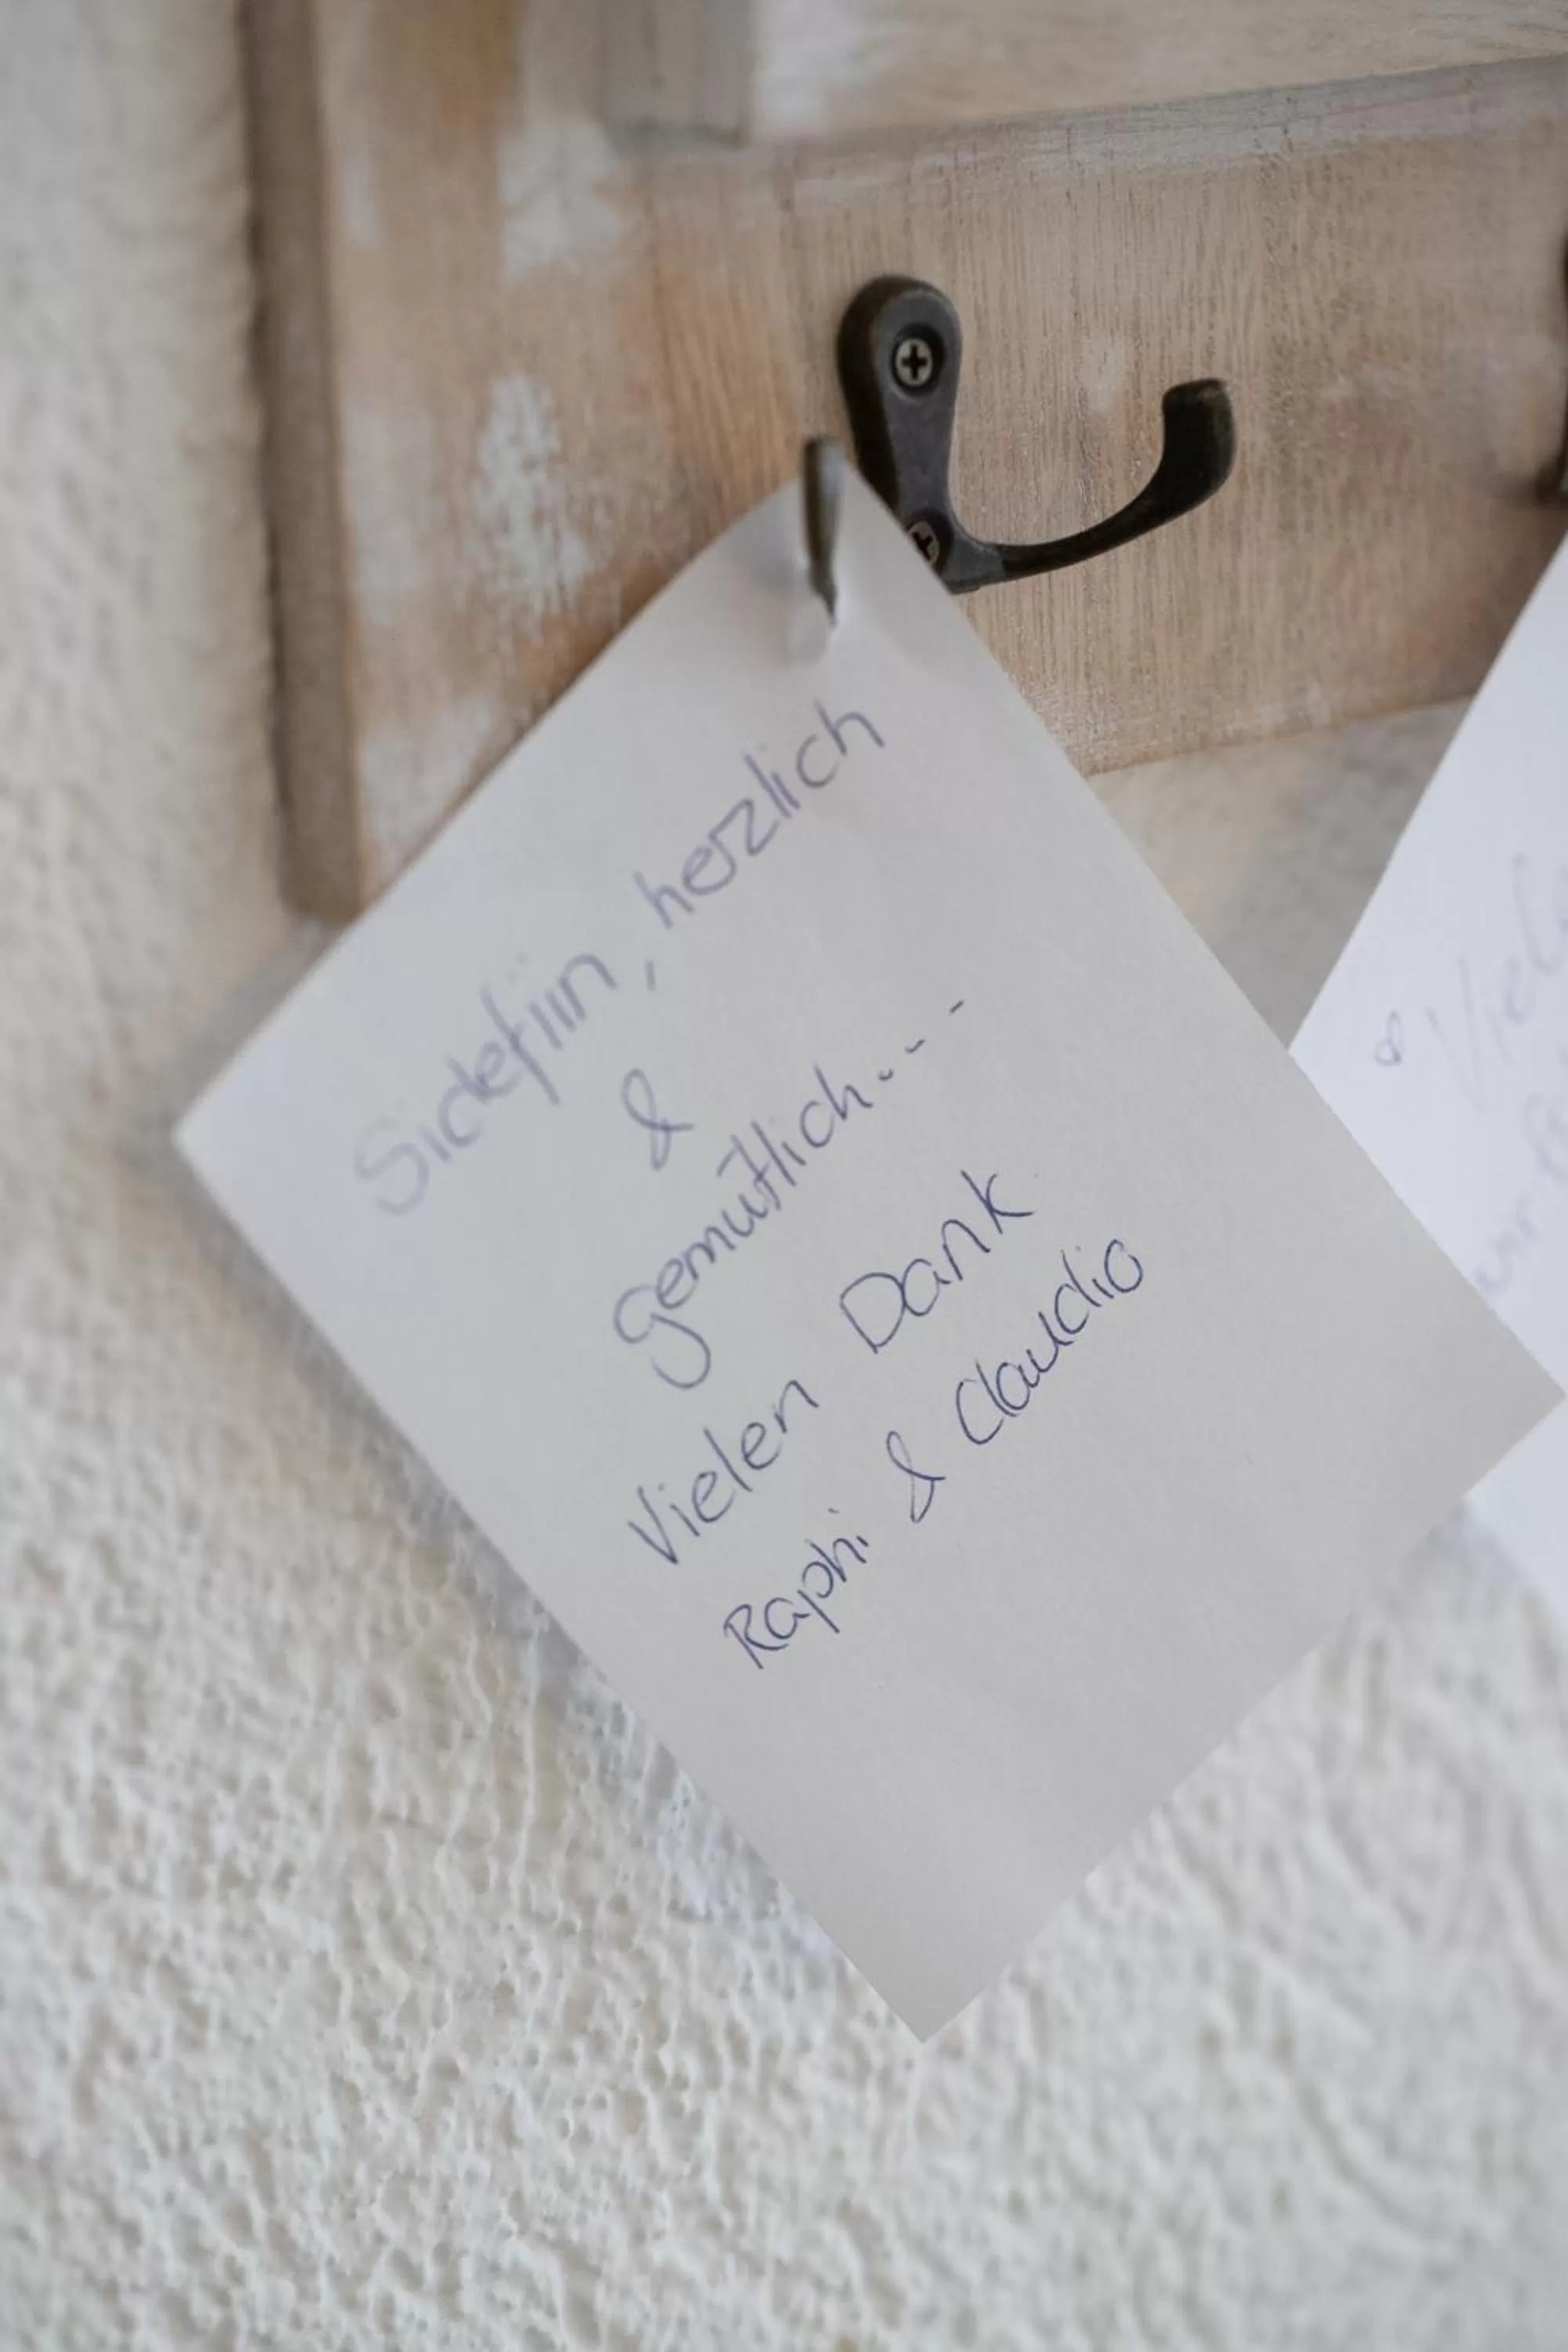 Sidefiin, herzlich
&
gemütlich...
Vielen Dank
Raphi & Claudio
Viel